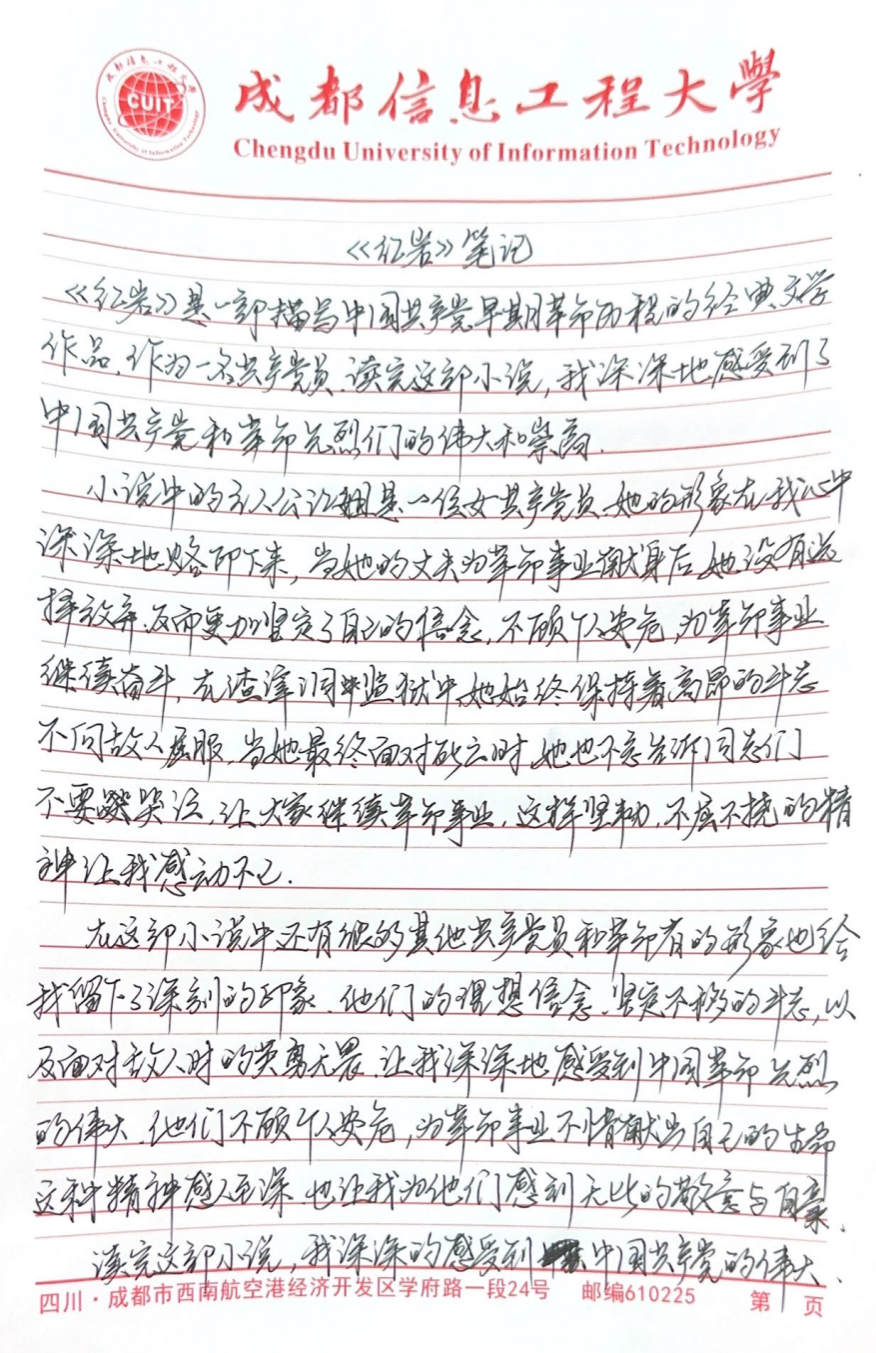 CUIT
成都信息工程大學
Chengdu University of Information Technology
《红岩》笔记
《红岩》是一部描写中国共产党早期革命历程的经典文学
作品,作为一名共产党员,读完这部小说,我深深地感受到了
中国共产党和革命先烈们的伟大和崇高.
小说中的主人公江姐是一位女共产党员,她的形象在我心中
深深地烙印下来,当她的丈夫为革命事业献身后,她没有选
择放弃,反而更加坚定了自己的信念,不顾个人安危,为革命事业
继续奋斗,在渣滓洞中监狱中,她始终保持着高昂的斗志
不向敌人屈服,当她最终面对死亡时,她也不忘告诉同志们
不要哭泣,让大家继续革命事业,这样坚韧,不屈不挠的精
神让我感动不已.
在这部小说中还有很多其他共产党员和革命者的形象也给
我留下了深刻的印象.他们的理想信念,坚定不移的斗志,以
及面对敌人时的英勇无畏,让我深深地感受到中国革命先烈
的伟大.他们不顾个人安危,为革命事业不惜献出自己的生命
这种精神感人至深,也让我为他们感到无比的敬意与自豪.
读完这部小说,我深深的感受到中国共产党的伟大、
四川·成都市西南航空港经济开发区学府路一段24号 邮编610225 第 页